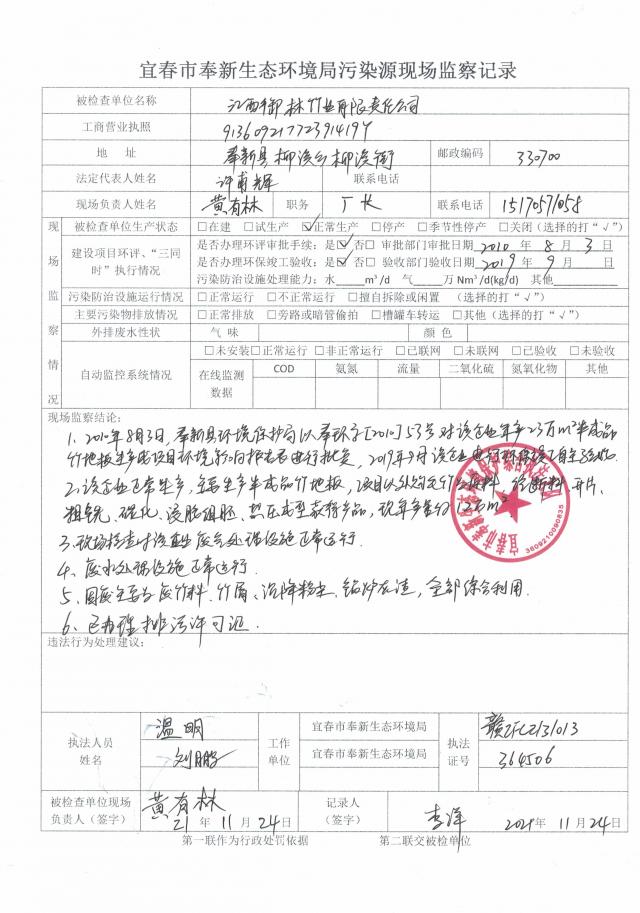 宜春市奉新生态环境局污染源现场监察记录
被检查单位名称 江西御林竹业有限责任公司
工商营业执照 91360921772391419Y
地 址 奉新县柳溪乡柳溪街 邮政编码 330700
法定代表人姓名 许甫辉 联系电话
现场负责人姓名 黄有林 职务 厂长 联系电话 15170571058
现场监察情况
被检查单位生产状态 □在建 □试生产 ☑正常生产 □停产 □季节性停产 □关闭(选择的打“√”)
建设项目环评、“三同时”执行情况
是否办理环评审批手续:是☑ 否□ 审批部门审批日期 2010 年 8 月 3 日
是否办理环保竣工验收:是☑ 否□ 验收部门验收日期 2019 年 9 月 日
污染防治设施处理能力:水 m³/d 气 万Nm³/d(kg/d) 其他
污染防治设施运行情况 □正常运行 □不正常运行 □擅自拆除或闲置 (选择的打“√”)
主要污染物排放情况 □正常排放 □旁路或暗管偷拍 □槽罐车转运 □其他(选择的打“√”)
外排废水性状 气 味 颜 色
自动监控系统情况 □未安装□正常运行 □非正常运行 □已联网 □未联网 □已验收 □未验收
在线监测数据 COD 氨氮 流量 二氧化硫 氮氧化物 其他
现场监察结论:
1、2010年8月3日,奉新县环境保护局以奉环字[2010]53号对该企业年产23万m²半成品
竹地板生产线项目环境影响报告表进行批复,2019年9月该企业进行环保竣工自主验收.
2、该企业正常生产,主要生产半成品竹地板,项目以外购毛竹为原料,经断料、开片、
粗铣、碳化、浸胶、组胚、热压成型获得产品,现年产量约12万m²
3、现场检查时该企业废气处理设施正常运行.
4、废水处理设施正常运行.
5、固废主要为废竹料、竹屑、沉降粉尘、锅炉灰渣,全部综合利用.
6、已办理排污许可证.
3609210090835
违法行为处理建议:
执法人员姓名 温明 刘鹏
工作单位 宜春市奉新生态环境局 宜春市奉新生态环境局
执法证号 赣ZFL2131013 364506
被检查单位现场负责人(签字) 黄有林 21 年 11 月 24 日
记录人(签字) 李洋 2021 年 11 月 24 日
第一联作为行政处罚依据 第二联交被检单位